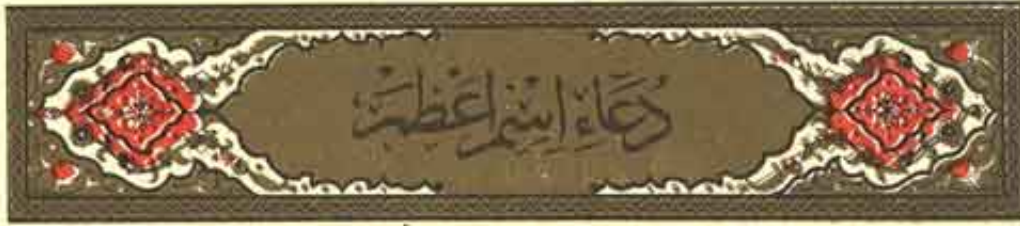 دُعَاءِ اِسْمِ اَعْظَمْ